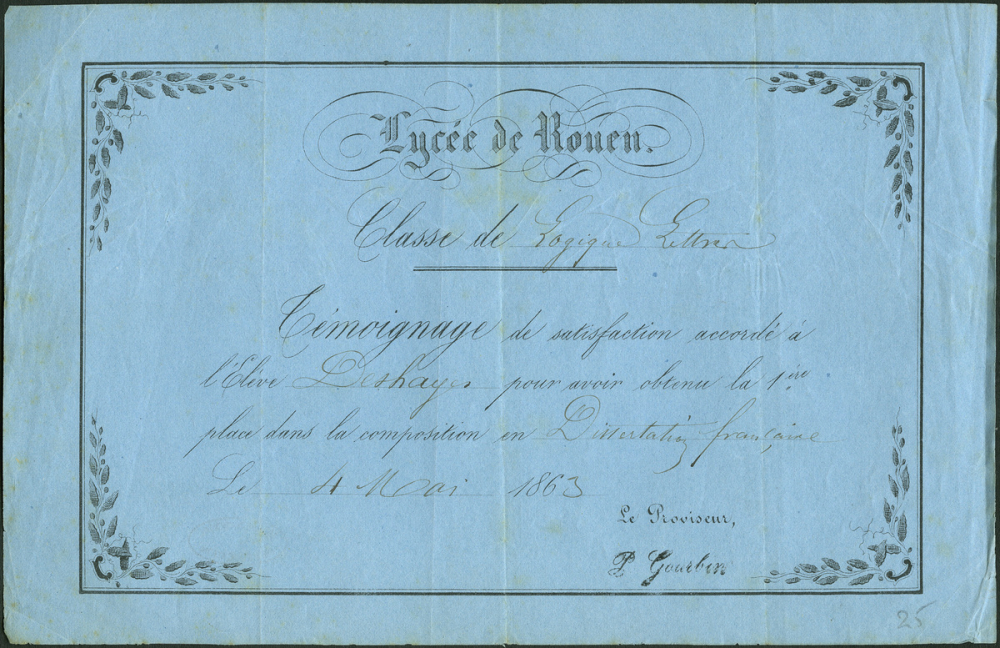 Lycée de Rouen.
Classe de Logique Lettres
Témoignage de satisfaction accordé à
l'Elève Deshayes pour avoir obtenu la 1ère
place dans la composition en Dissertation française
Le 4 Mai 1863
Le Proviseur,
P Gourbin
25